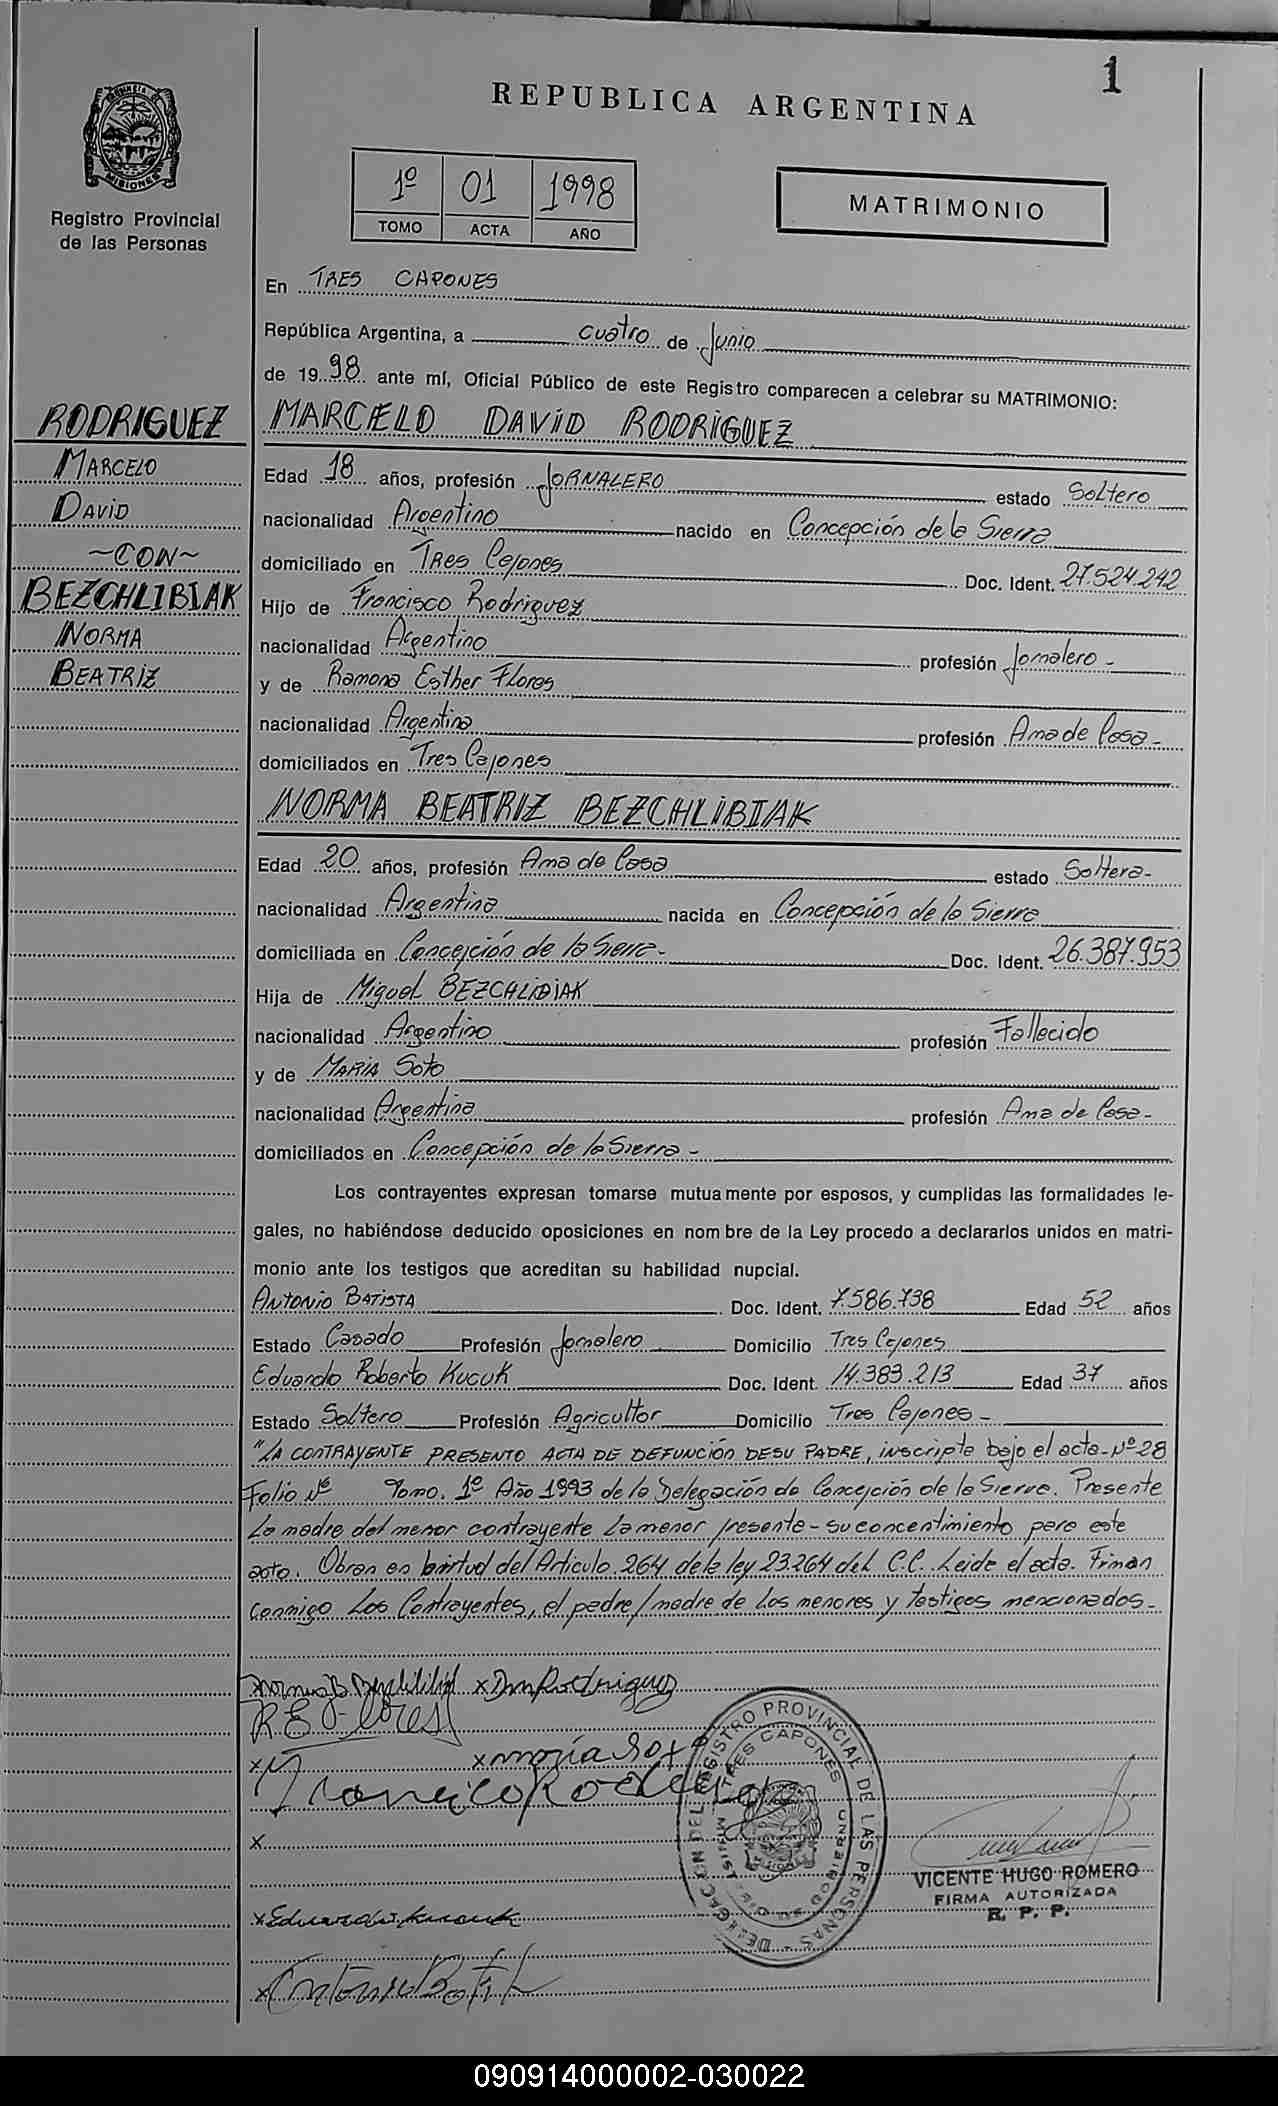 1
REPUBLICA ARGENTINA
MISIONES
Registro Provincial
de las Personas
1º 01 1998
TOMO ACTA AÑO
MATRIMONIO
En TRES CAPONES
República Argentina, a cuatro de Junio
de 1998 ante mí, Oficial Público de este Registro comparecen a celebrar su MATRIMONIO:
RODRIGUEZ
MARCELO
DAVID
~CON~
BEZCHLIBIAK
NORMA
BEATRIZ
MARCELO DAVID RODRIGUEZ
Edad 18 años, profesión JORNALERO estado Soltero
nacionalidad Argentino nacido en Concepción de la Sierra
domiciliado en Tres Capones Doc. Ident. 27.524.242
Hijo de Francisco Rodriguez
nacionalidad Argentino profesión Jornalero -
y de Ramona Esther Flores
nacionalidad Argentina profesión Ama de Casa -
domiciliados en Tres Capones
NORMA BEATRIZ BEZCHLIBIAK
Edad 20 años, profesión Ama de Casa estado Soltera-
nacionalidad Argentina nacida en Concepción de la Sierra
domiciliada en Concepción de la Sierra - Doc. Ident. 26.387.953
Hija de Miguel BEZCHLIBIAK
nacionalidad Argentino profesión Fallecido
y de MARIA Soto
nacionalidad Argentina profesión Ama de Casa -
domiciliados en Concepción de la Sierra -
Los contrayentes expresan tomarse mutuamente por esposos, y cumplidas las formalidades le-
gales, no habiéndose deducido oposiciones en nombre de la Ley procedo a declararlos unidos en matri-
monio ante los testigos que acreditan su habilidad nupcial.
ANTONIO BATISTA Doc. Ident. 7.586.738 Edad 52 años
Estado Casado Profesión Jornalero Domicilio Tres Capones
Eduardo Roberto Kucuk Doc. Ident. 14.383.213 Edad 37 años
Estado Soltero Profesión Agricultor Domicilio Tres Capones -
"LA CONTRAYENTE PRESENTO ACTA DE DEFUNCIÓN DE SU PADRE, inscripta bajo el acta- Nº 28
Folio Nº Tomo. 1º Año 1993 de la Delegación de Concepción de la Sierra. Presente
La madre del menor contrayente La menor presente - su concentimiento para este
acto. Obran en birtud del Articulo 264 de la ley 23.264 del C.C. Leida el acta. Firman
conmigo Los Contrayentes, el padre/madre de Los menores y testigos mencionados -
x Norma B Bezchlibiak x Dm Rodriguez
R E Flores
x María Soto
x Francisco Rodriguez
x
x Eduardo Kucuk
x Antonio Batista
DELEGACION DEL REGISTRO PROVINCIAL DE LAS PERSONAS
TRES CAPONES
VICENTE HUGO ROMERO
FIRMA AUTORIZADA
R. P. P.
090914000002-030022